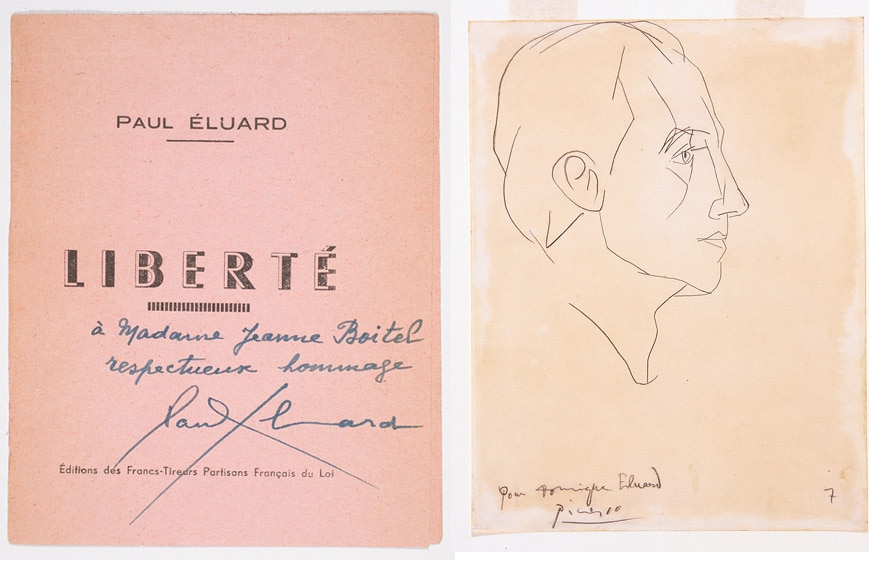 PAUL ÉLUARD
LIBERTÉ
à Madame Jeanne Boitel
respectueux hommage
Paul Eluard
Éditions des Francs-Tireurs Partisans Français du Lot
Pour Dominique Eluard
Picasso
7